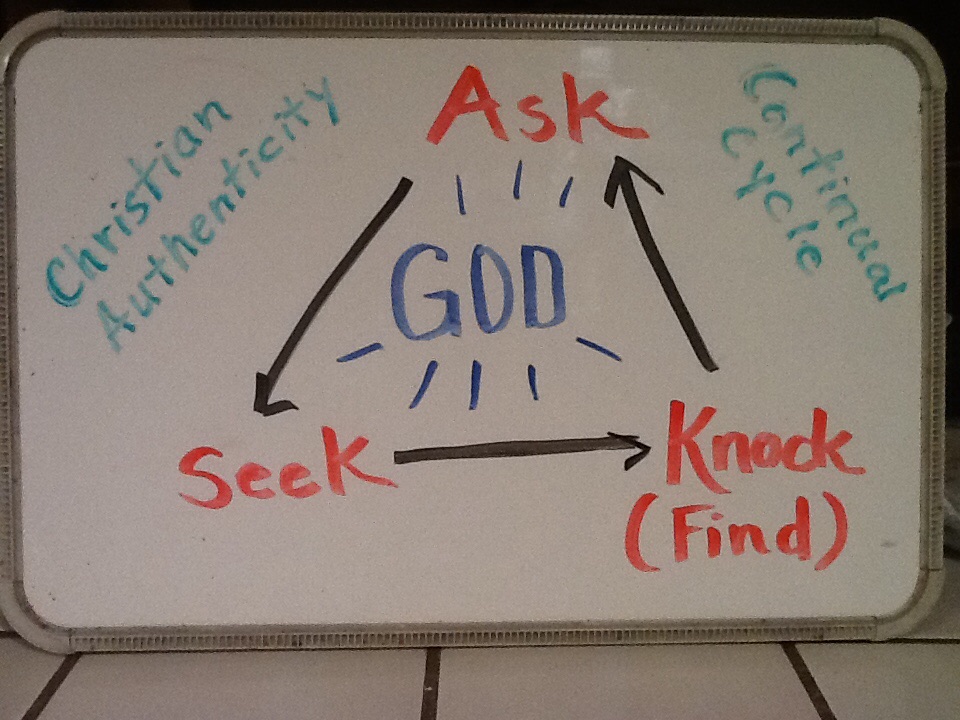 Christian
Authenticity
Ask
Continual
Cycle
GOD
Seek
Knock
(Find)